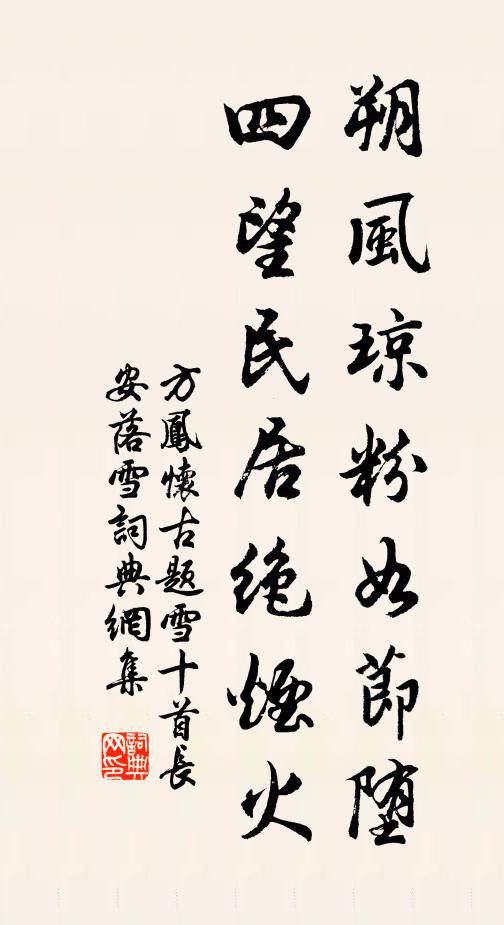 朔風琼粉如節堕
四望民居绝煙火
方鳳懷古題雪十首長
安落雪詞典網集
詞典
网印